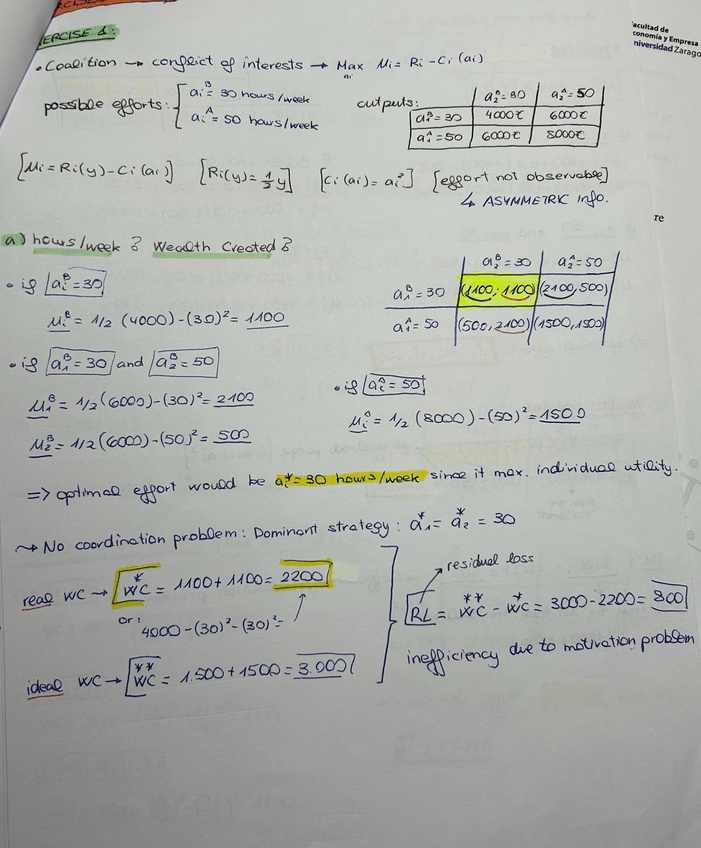 ERCISE 1:
• Coalition → conflict of interests → Max ai Mi = Ri - Ci (ai)
possible efforts: ai^B = 30 hours/week
ai^A = 50 hours/week
outputs:
a2^B = 30 a2^A = 50
a1^B = 30 4000€ 6000€
a1^A = 50 6000€ 8000€
[Mi = Ri(y) - Ci (ai)] [Ri(y) = 1/2 y] [Ci (ai) = ai²] [effort not observable]
↳ ASYMMETRIC info.
a) hours/week? Wealth Created?
a2^B = 30 a2^A = 50
a1^B = 30 (1100, 1100) (2100, 500)
a1^A = 50 (500, 2100) (1500, 1500)
• if ai^B = 30
Mi^B = 1/2 (4000) - (30)² = 1100
• if a1^B = 30 and a2^B = 50
M1^B = 1/2 (6000) - (30)² = 2100
M2^B = 1/2 (6000) - (50)² = 500
• if ai^A = 50
Mi^A = 1/2 (8000) - (50)² = 1500
=> optimal effort would be ai* = 30 hours/week since it max. individual utility.
~> No coordination problem: Dominant strategy: a1* = a2* = 30
real WC → WC* = 1100 + 1100 = 2200
or: 4000 - (30)² - (30)² =
ideal WC → WC** = 1.500 + 1500 = 3.000
residual loss
RL = WC** - WC* = 3000 - 2200 = 800
inefficiency due to motivation problem
acultad de
conomía y Empresa
niversidad Zarago
re